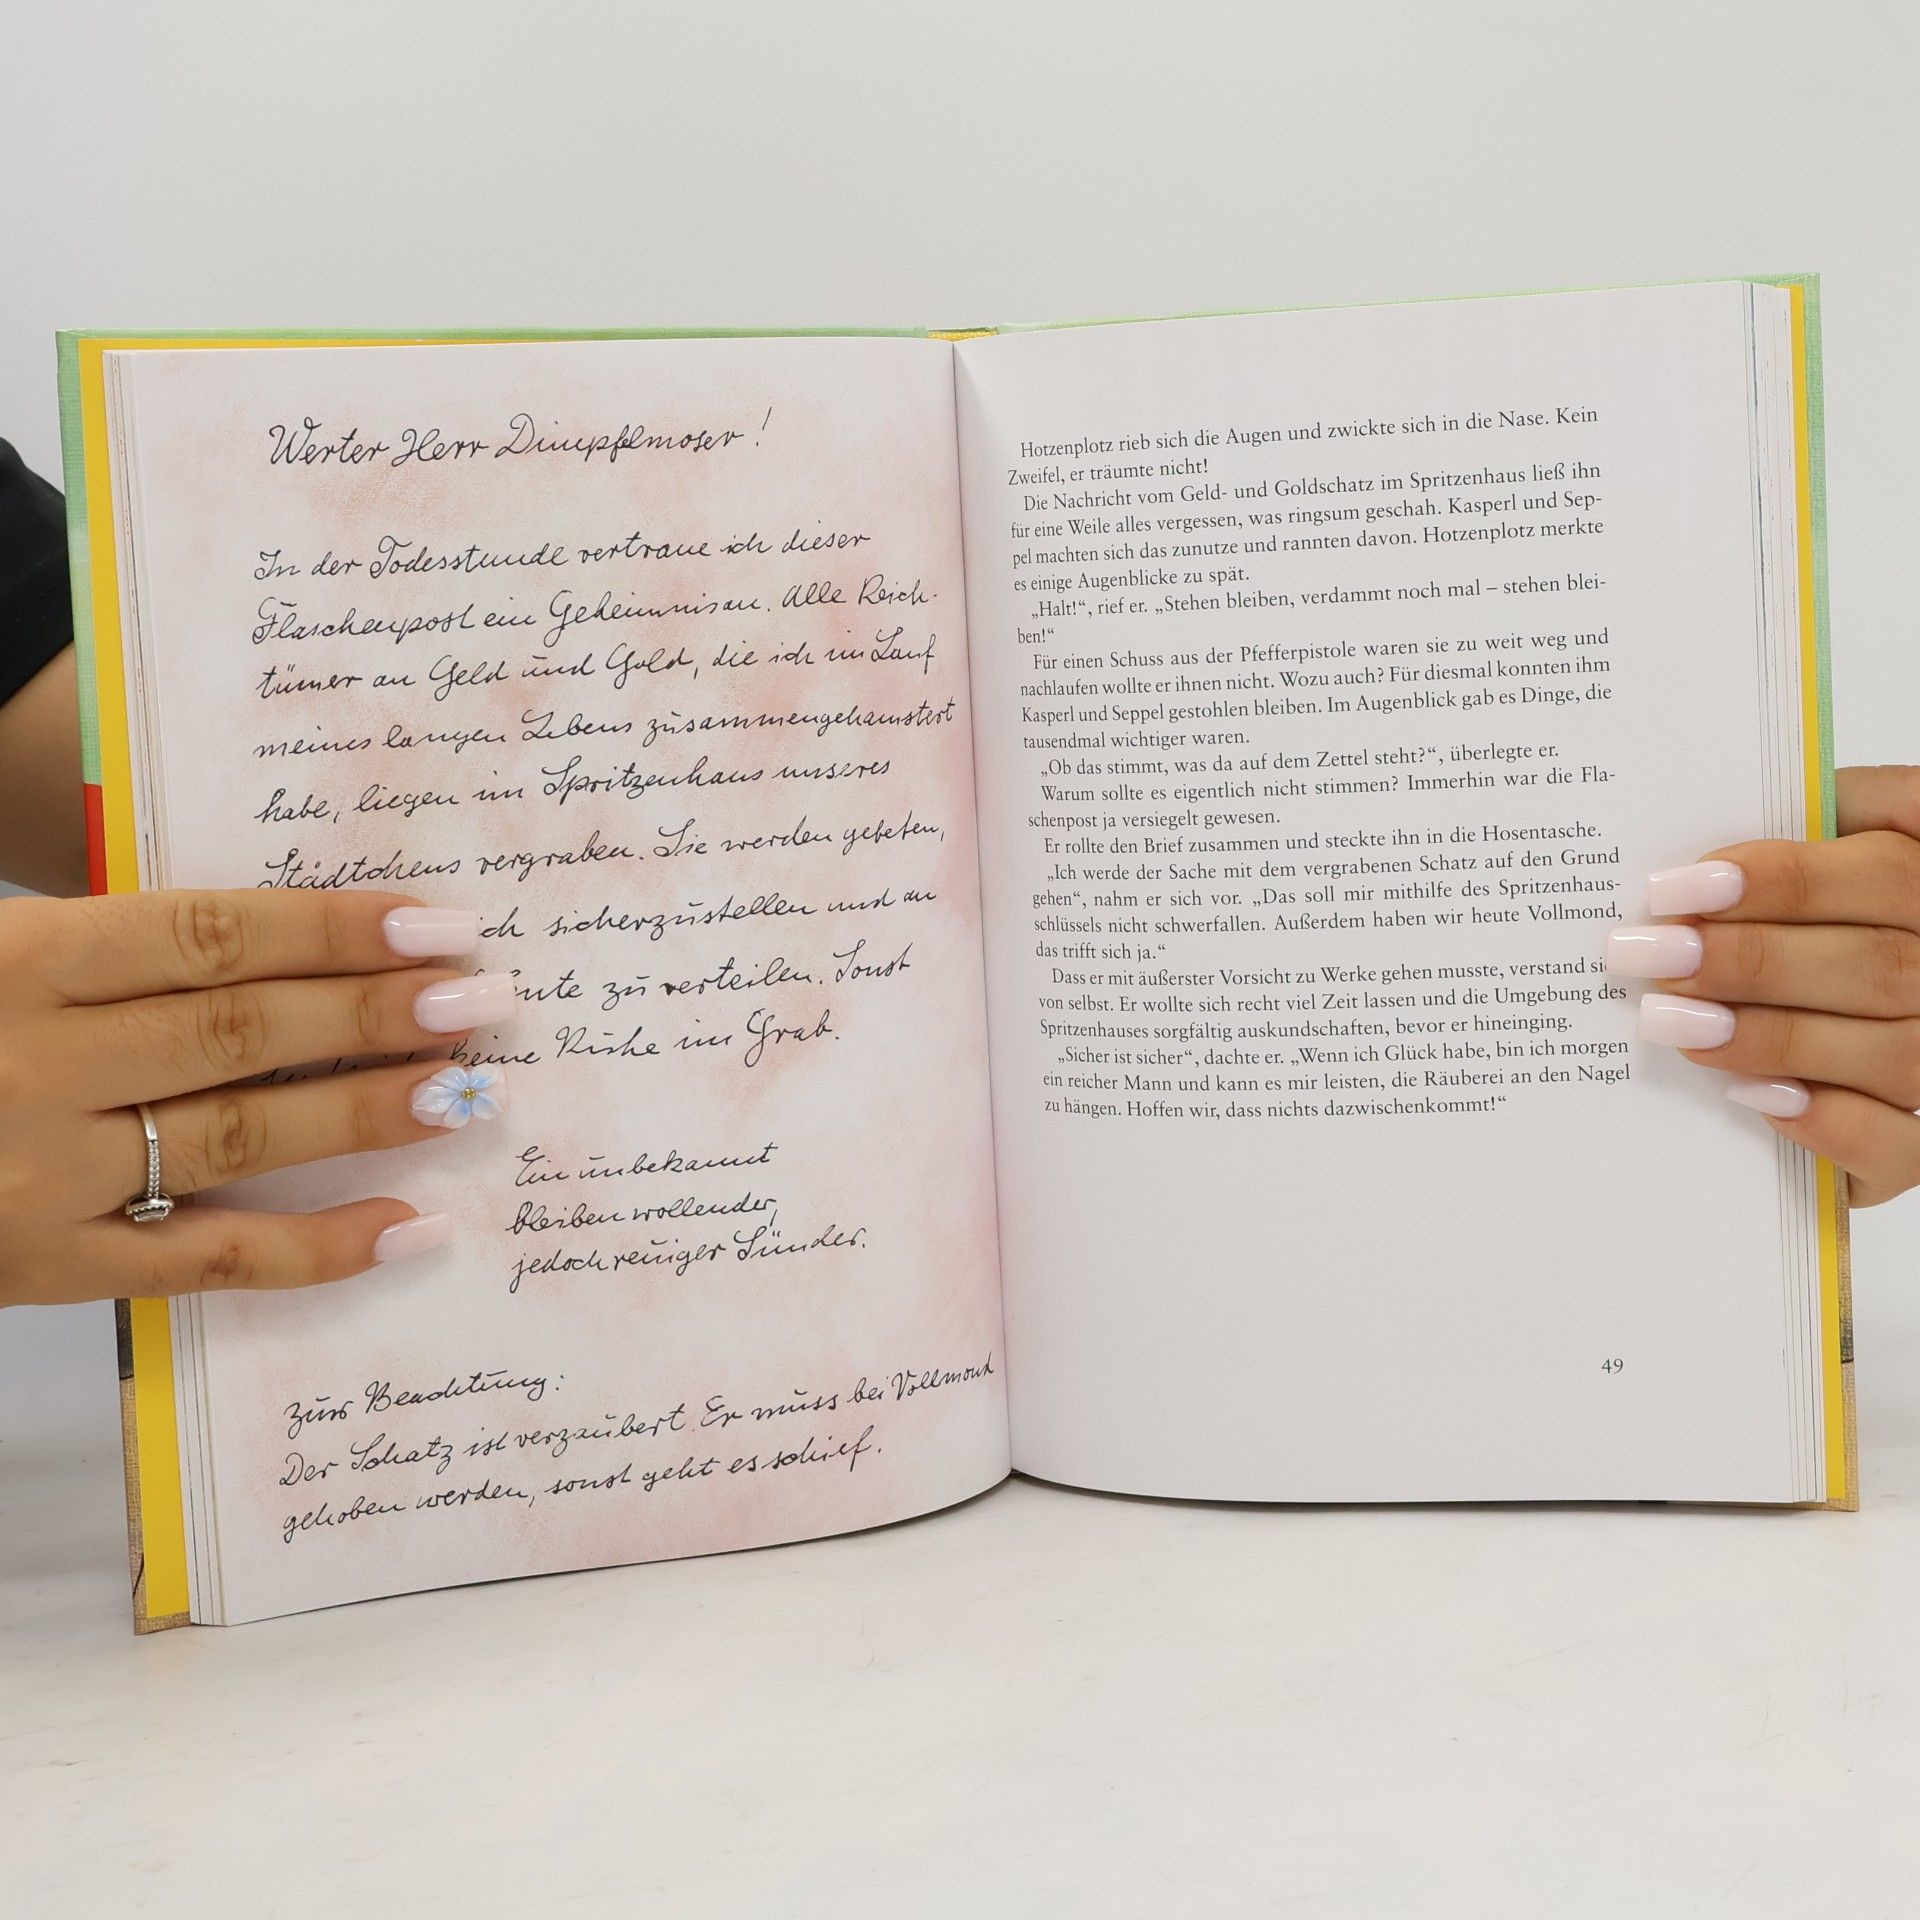 Werter Herr Dimpfelmoser!
In der Todesstunde vertraue ich dieser
Flaschenpost ein Geheimnis an. Alle Reich-
tümer an Geld und Gold, die ich im Lauf
meines langen Lebens zusammengehamstert
habe, liegen im Spritzenhaus unseres
Städtchens vergraben. Sie werden gebeten,
sicherzustellen und an
zu verteilen. Sonst
keine Ruhe im Grab.
Ein unbekannt
bleiben wollender,
jedoch reuiger Sünder.
Zur Beachtung:
Der Schatz ist verzaubert. Er muss bei Vollmond
gehoben werden, sonst geht es schief.
Hotzenplotz rieb sich die Augen und zwickte sich in die Nase. Kein
Zweifel, er träumte nicht!
Die Nachricht vom Geld- und Goldschatz im Spritzenhaus ließ ihn
für eine Weile alles vergessen, was ringsum geschah. Kasperl und Sep-
pel machten sich das zunutze und rannten davon. Hotzenplotz merkte
es einige Augenblicke zu spät.
„Halt!“, rief er. „Stehen bleiben, verdammt noch mal – stehen blei-
ben!“
Für einen Schuss aus der Pfefferpistole waren sie zu weit weg und
nachlaufen wollte er ihnen nicht. Wozu auch? Für diesmal konnten ihm
Kasperl und Seppel gestohlen bleiben. Im Augenblick gab es Dinge, die
tausendmal wichtiger waren.
„Ob das stimmt, was da auf dem Zettel steht?“, überlegte er.
Warum sollte es eigentlich nicht stimmen? Immerhin war die Fla-
schenpost ja versiegelt gewesen.
Er rollte den Brief zusammen und steckte ihn in die Hosentasche.
„Ich werde der Sache mit dem vergrabenen Schatz auf den Grund
gehen“, nahm er sich vor. „Das soll mir mithilfe des Spritzenhaus-
schlüssels nicht schwerfallen. Außerdem haben wir heute Vollmond,
das trifft sich ja.“
Dass er mit äußerster Vorsicht zu Werke gehen musste, verstand
von selbst. Er wollte sich recht viel Zeit lassen und die Umgebung des
Spritzenhauses sorgfältig auskundschaften, bevor er hineinging.
„Sicher ist sicher“, dachte er. „Wenn ich Glück habe, bin ich morgen
ein reicher Mann und kann es mir leisten, die Räuberei an den Nagel
zu hängen. Hoffen wir, dass nichts dazwischenkommt!“
49